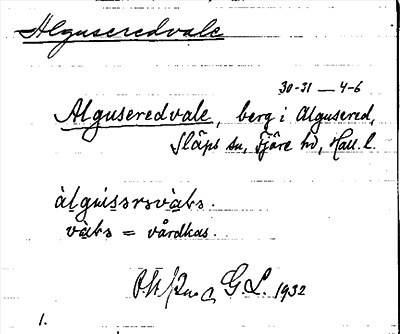 Alguseredvale
30-31 — 4-6
Alguseredvale, berg i Algusered,
Släps sn, Fjäre hd, Hall. l.
våks = vårdkas.
G L. 1932
1.